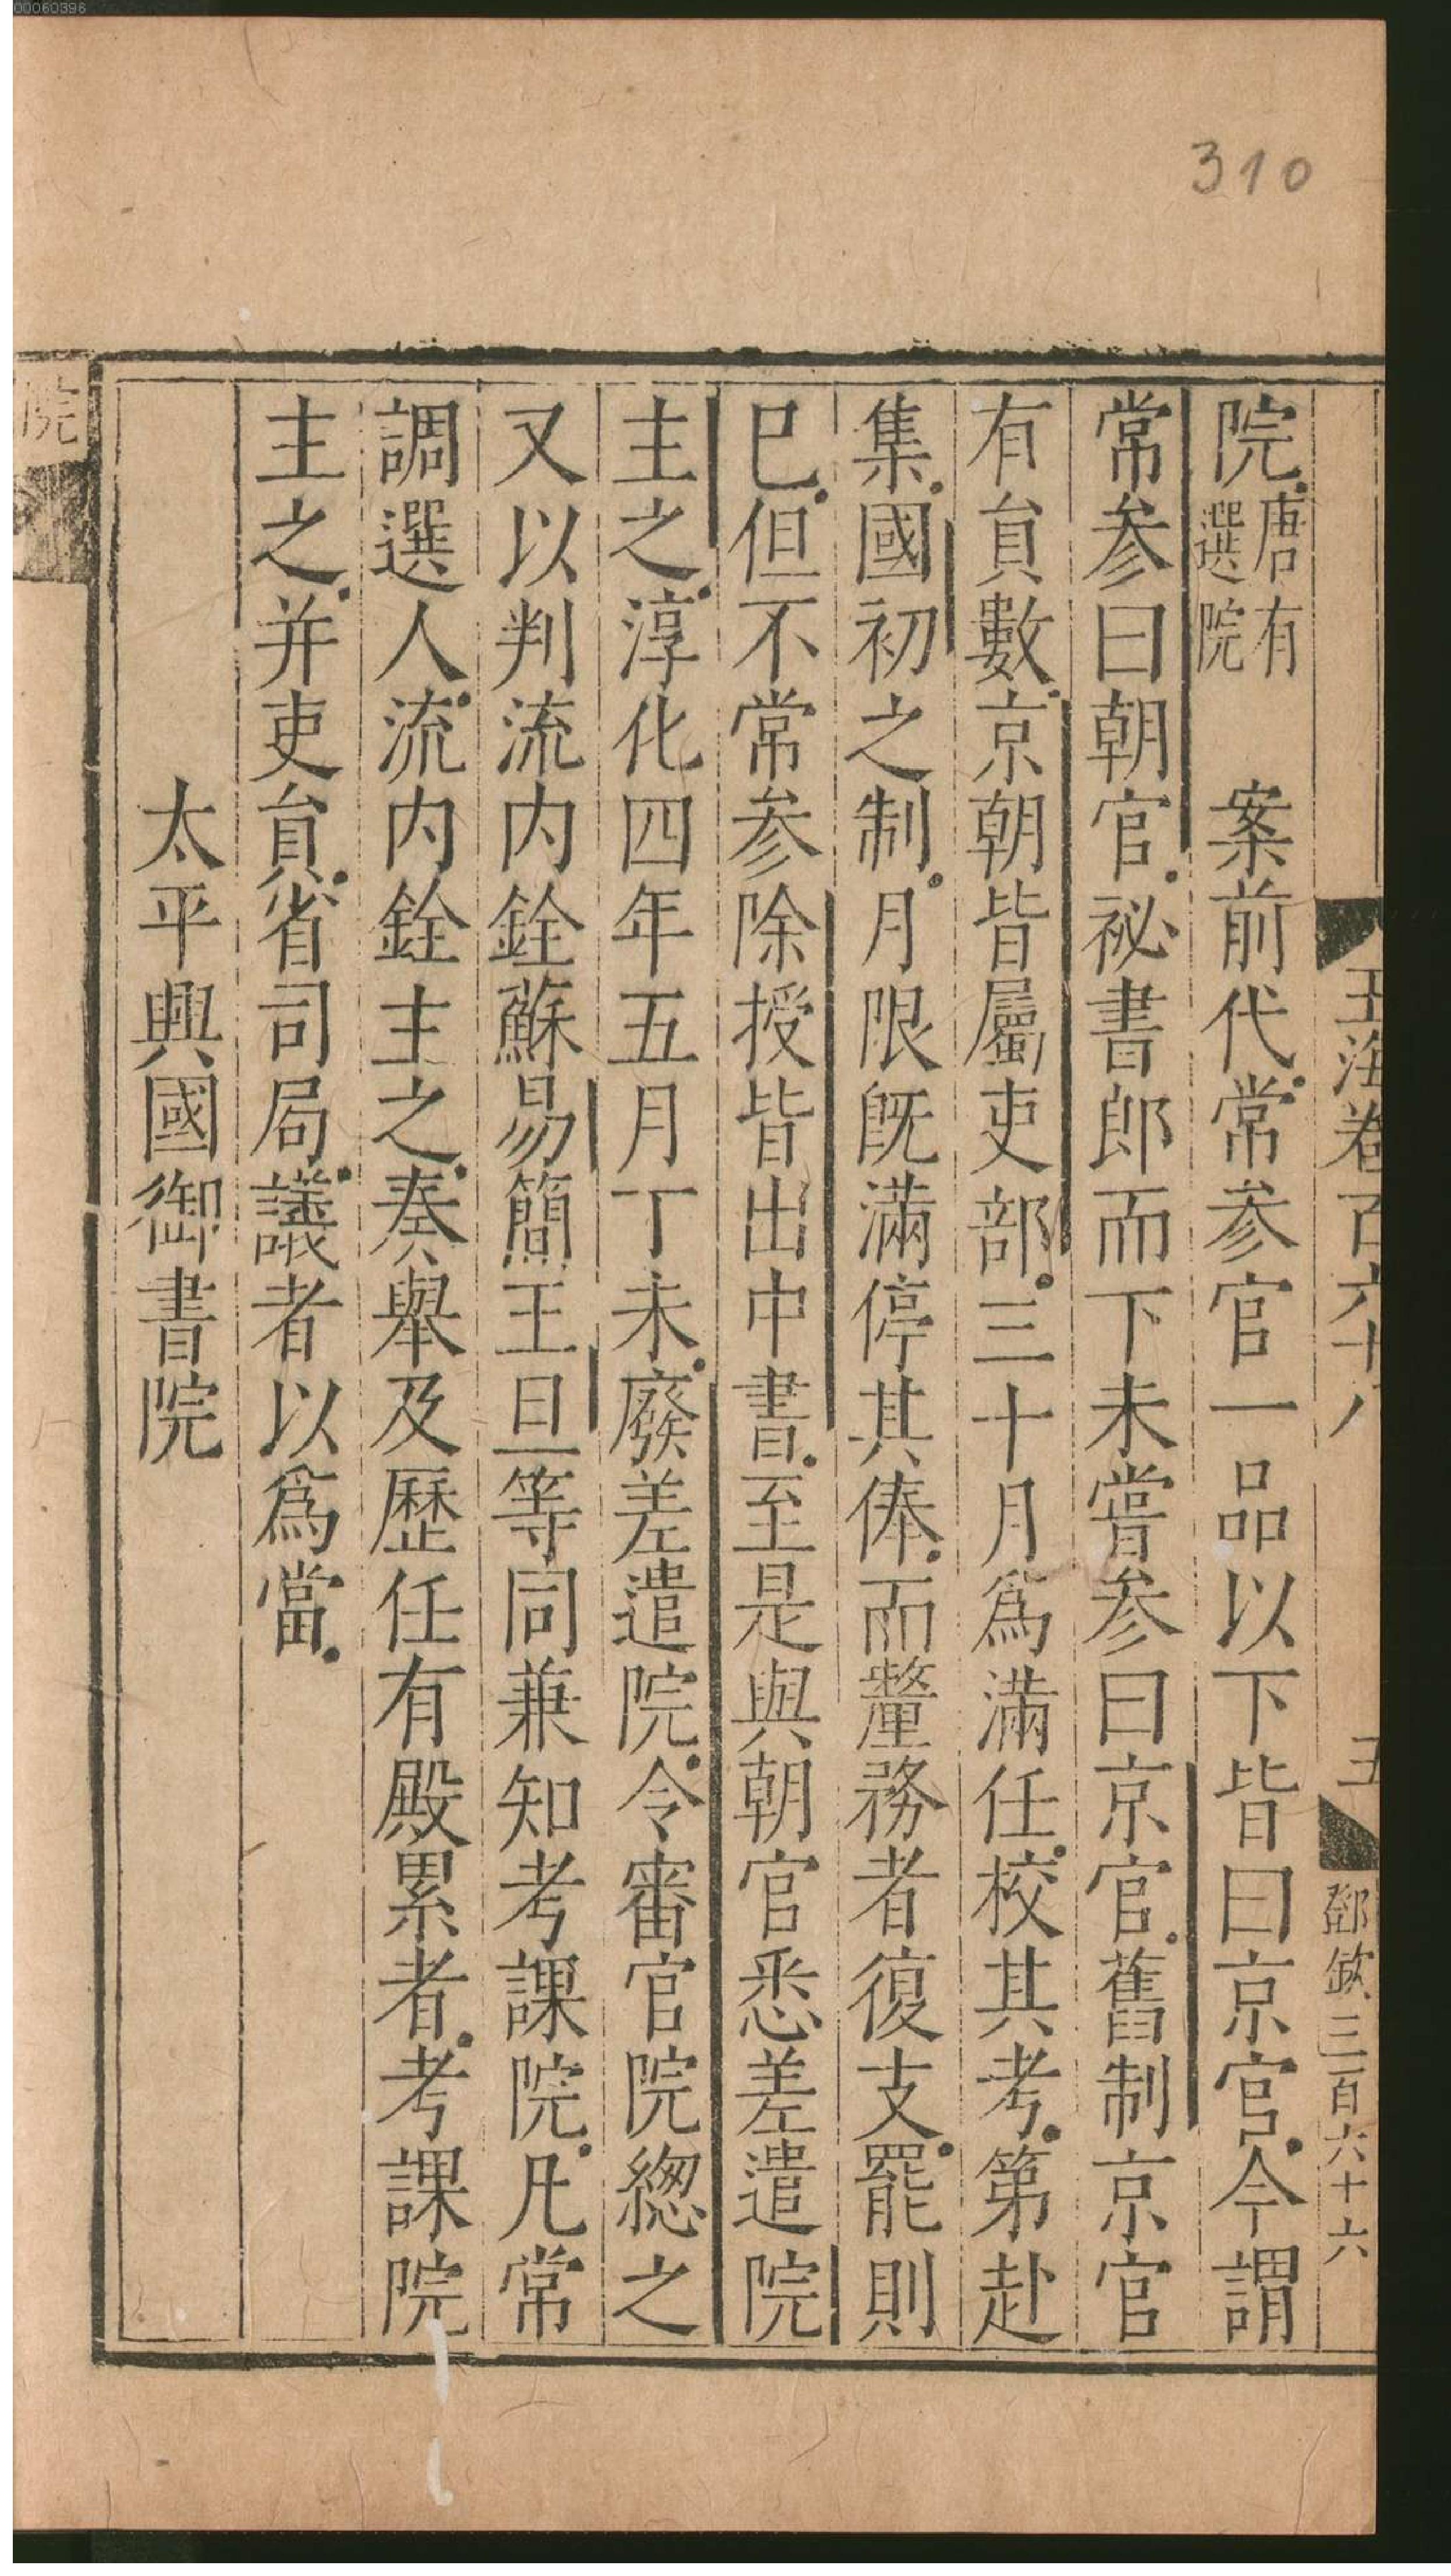 00060396
310
玉海卷百六十八
五
鄧欽三百六十六
院唐有選院　案前代常参官一品以下皆曰京官今謂
常参曰朝官祕書郎而下未嘗参曰京官舊制京官
有貟數京朝皆屬吏部三十月爲滿任校其考第赴
集國初之制月限旣滿停其俸而釐務者復支罷則
已但不常参除授皆出中書至是與朝官悉差遣院
主之淳化四年五月丁未廢差遣院令審官院緫之
又以判流内銓蘇易簡王旦等同兼知考課院凡常
調選人流内銓主之奏舉及歷任有殿累者考課院
主之并吏貟省司局議者以爲當
太平興國御書院
院